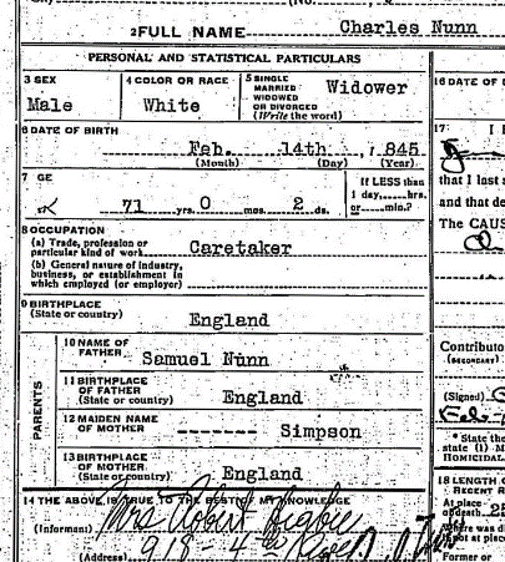 2 FULL NAME Charles Nunn
PERSONAL AND STATISTICAL PARTICULARS
3 SEX
Male
4 COLOR OR RACE
White
5 SINGLE
MARRIED
WIDOWED
OR DIVORCED
(Write the word)
Widower
16 DATE OF
6 DATE OF BIRTH
Feb. 14th , 1845
(Month) (Day) (Year)
17 I
7 GE
71 yrs. 0 mos. 2 ds.
If LESS than
1 day, hrs.
or min.?
that I last
and that de
The CAUS
8 OCCUPATION
(a) Trade, profession or
particular kind of work Caretaker
(b) General nature of industry,
business, or establishment in
which employed (or employer)
9 BIRTHPLACE
(State or country) England
PARENTS
10 NAME OF
FATHER Samuel Nunn
11 BIRTHPLACE
OF FATHER
(State or country) England
12 MAIDEN NAME
OF MOTHER ------- Simpson
13 BIRTHPLACE
OF MOTHER
(State or country) England
Contributo
(SECONDARY)
(Signed)
* State the
state (1) M
HOMICIDAL
14 THE ABOVE IS TRUE TO THE BEST OF MY KNOWLEDGE
(Informant) Mrs Robert
(Address) 918 - 4th Ave
18 LENGTH O
RECENT R
At place
of death 25
Where was di
if not at place
Former or